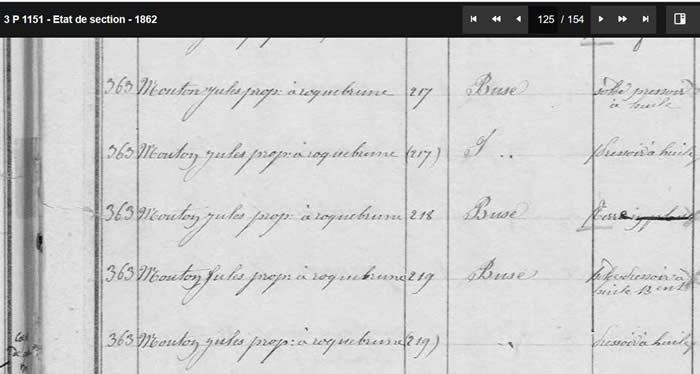 3 P 1151 - Etat de section - 1862 125 / 154
363 Mouton jules prop: à roquebrune 217 Buse pressoir
à huile
363 Mouton jules prop: à roquebrune (217) pressoir à huile
363 Mouton jules prop: à roquebrune 218 Buse
363 Mouton jules prop: à roquebrune 219 Buse pressoir à
huile
363 Mouton jules prop: à roquebrune (219) pressoir à huile